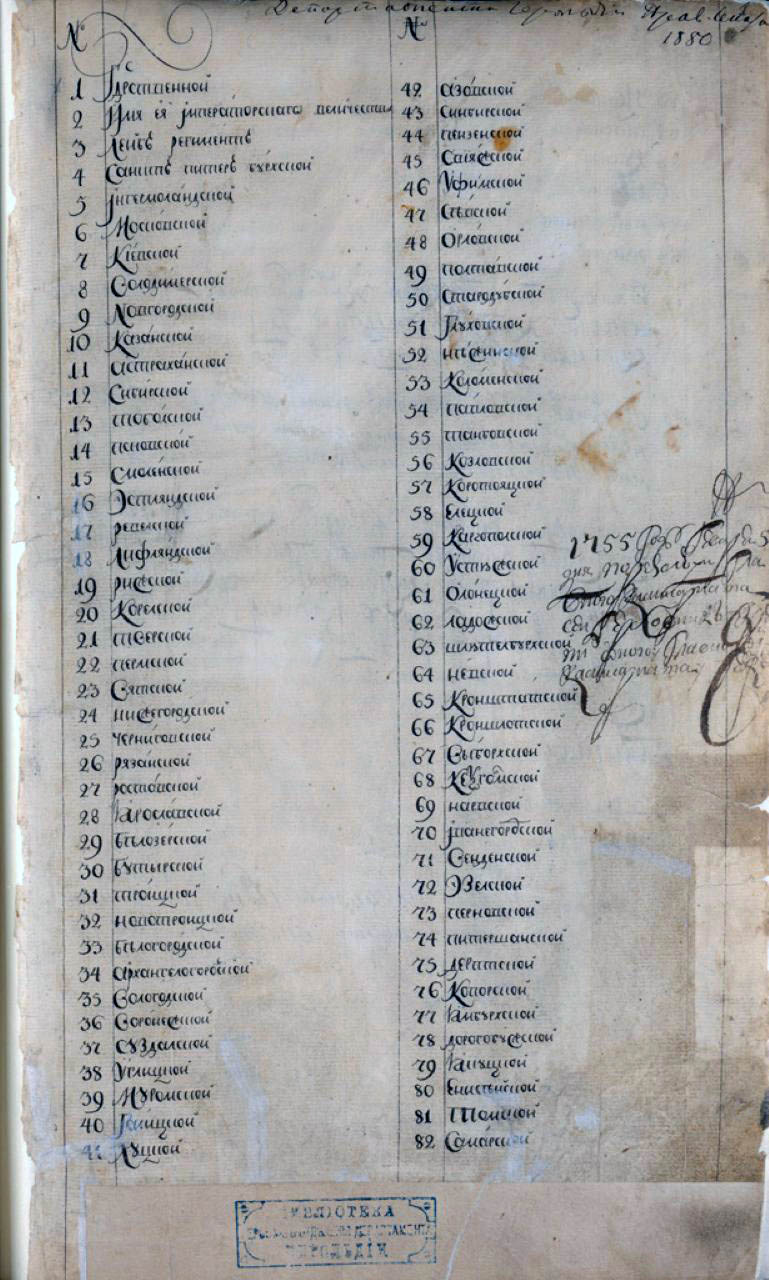 Департамента Герольдіи
1880
№
1 Гдрственной
2 Имя ея імператорскаго величества
3 Леибъ региментъ
4 Санктъ питеръ бурхской
5 інгермоландской
6 Московской
7 Кіевской
8 Володимерской
9 Новгородской
10 Казанской
11 астраханской
12 Сибирской
13 тоболской
14 псковской
15 Смоленской
16 Эстляндской
17 ревелской
18 Лифляндской
19 рижской
20 Корелской
21 тверской
22 пермской
23 Вятской
24 нижегородской
25 черниговской
26 рязанской
27 ростовской
28 Ярославской
29 бѣлозерской
30 Бутырской
31 троицкой
32 новотроицкой
33 бѣлогородской
34 архангелогородской
35 Вологодской
36 Воронежской
37 суздалской
38 Углицкой
39 Муромской
40 Галицкой
41 Луцкой
№
42 азовской
43 синбирской
44 пензенской
45 Свіяжской
46 Уфимской
47 Сѣвской
48 Орловской
49 полтавской
50 Стародубской
51 Глуховской
52 нѣжинской
53 Коломенской
54 павловской
55 танбовской
56 Козловской
57 Коротояцкой
58 Елецкой
59 Каргополской
60 Устюжской
61 Олонецкой
62 ладожской
63 шлютелбурхской
64 невской
65 Кронштатской
66 Кроншлотской
67 Выборхской
68 Кегзолмской
69 нарвской
70 іванегородской
71 Венденской
72 Эзелской
73 перновской
74 питершанской
75 дерптской
76 Копорской
77 Ямбурхской
78 дорогобужской
79 Якуцкой
80 Енисѣйской
81 Томской
82 Самарской
1755
БИБЛІОТЕКА
ДЕПАРТАМЕНТА
ГЕРОЛЬДІИ